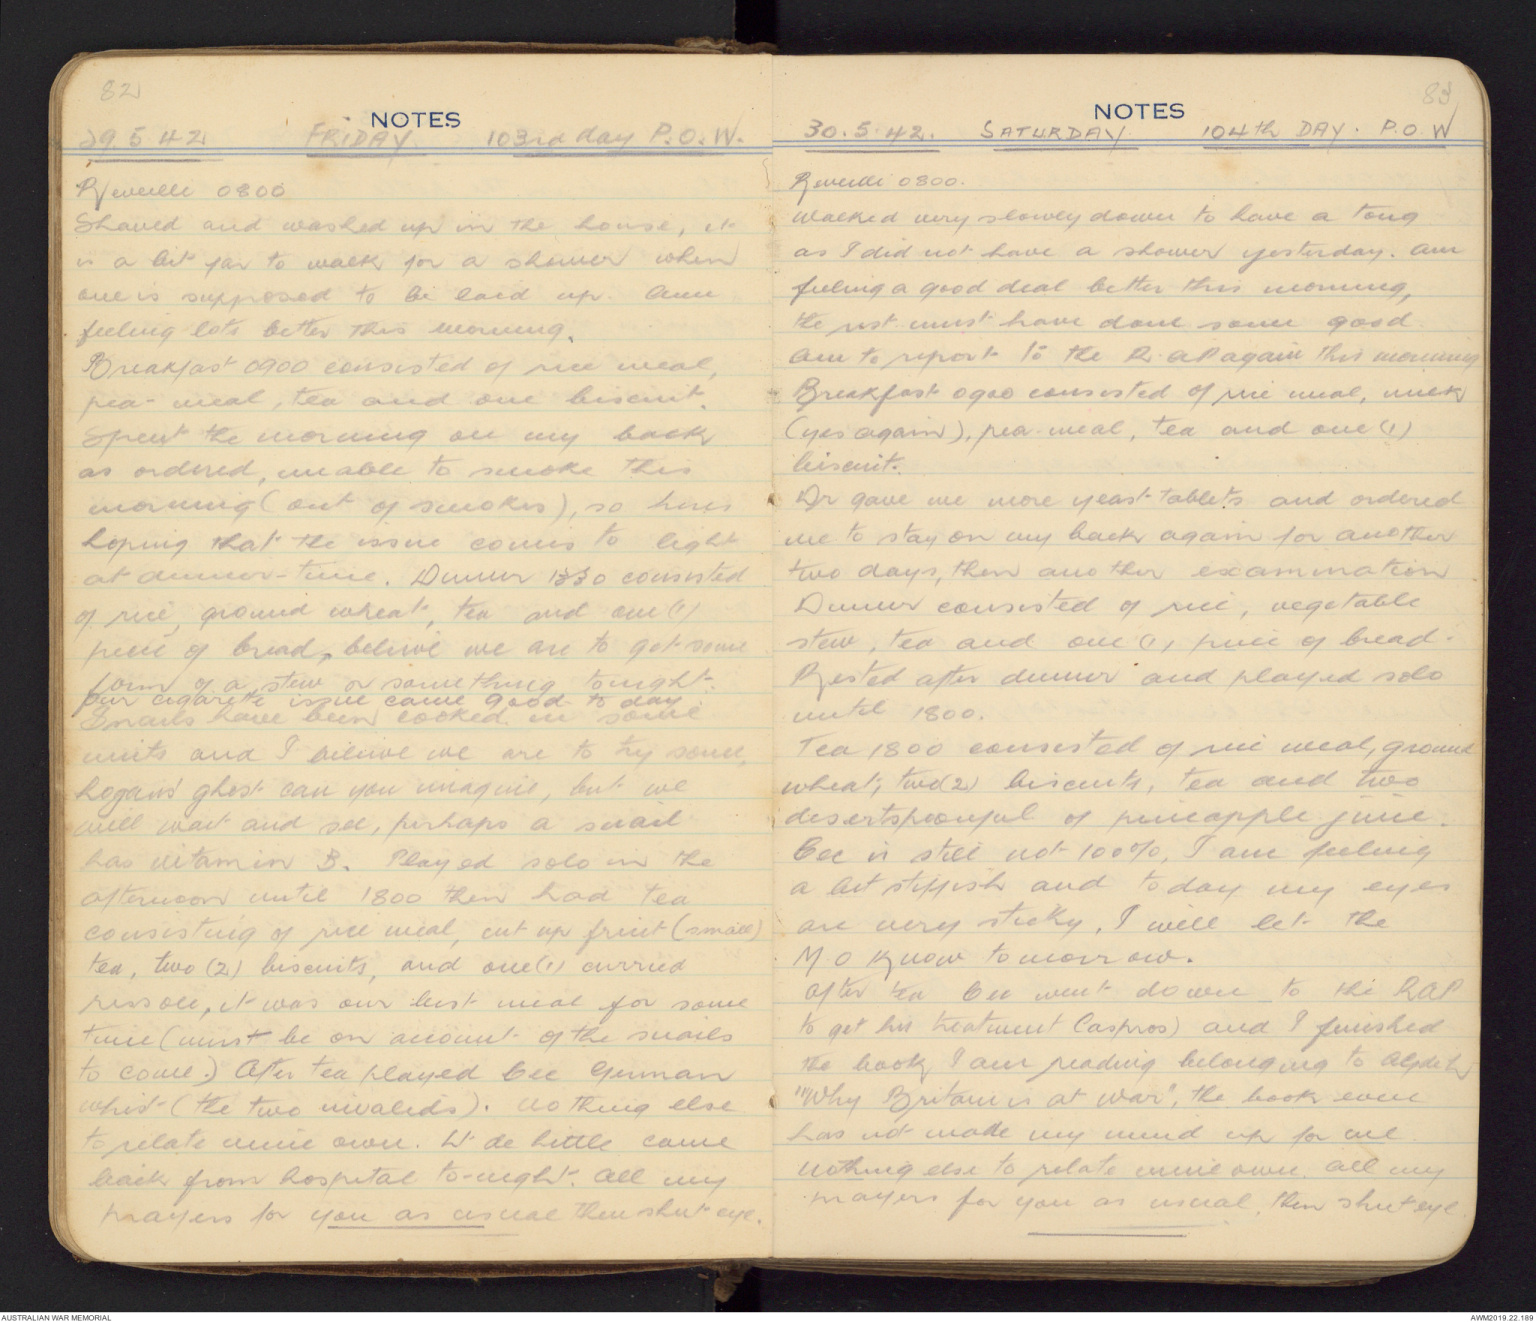 82
NOTES
29.5.42 FRIDAY 103rd day P.O.W.
Reveille 0800
Shaved and washed up in the house, it
is a bit far to walk for a shower when
one is supposed to be laid up. Am
feeling lots better this morning.
Breakfast 0900 consisted of rice meal,
pea-meal, tea and one biscuit.
Spent the morning on my back
as ordered, unable to smoke this
morning (out of smokes), so heres
hoping that the issue comes to light
at dinner-time. Dinner 1330 consisted
of rice, ground wheat, tea and one (1)
piece of bread, believe we are to get some
form of a stew or something tonight.
Our cigarette issue came good to day
Snails have been cooked in some
units and I believe we are to try some,
hogans' ghost can you imagine, but we
will wait and see, perhaps a snail
has vitamin B. Played solo in the
afternoon until 1800 then had tea
consisting of rice meal, cut up fruit (small)
tea, two (2) biscuits, and one (1) curried
rissole, it was our best meal for some
time (must be on account of the snails
to come.) After tea played Cec German
whist (the two invalids). Nothing else
to relate mine own. Lt de Little came
back from hospital to-night. All my
prayers for you as usual then shut eye.
83
NOTES
30.5.42. SATURDAY 104th DAY. P.O.W
Reveille 0800.
Walked very slowly down to have a tong
as I did not have a shower yesterday. Am
feeling a good deal better this morning,
the rest must have done some good
Am to report to the R.A.P again this morning
Breakfast 0900 consisted of rice meal, milk
(yes again), pea-meal, tea and one (1)
biscuit.
Dr gave me more yeast-tablets and ordered
me to stay on my back again for another
two days, then another examination
Dinner consisted of rice, vegetable
stew, tea and one (1) piece of bread.
Rested after dinner and played solo
until 1800.
Tea 1800 consisted of rice meal, ground
wheat, two (2) biscuits, tea and two
desertspoonful of pineapple juice.
Cec is still not 100%, I am feeling
a bit stiffish and today my eyes
are very sticky, I will let the
M O know tomorrow.
After tea Cec went down to the RAP
to get his treatment (aspros) and I finished
the book I am reading belonging to
"Why Britain is at war", the book even
has not made my mind up for me
nothing else to relate mine own. All my
prayers for you as usual, then shut eye.
AUSTRALIAN WAR MEMORIAL
AWM2019.22.189